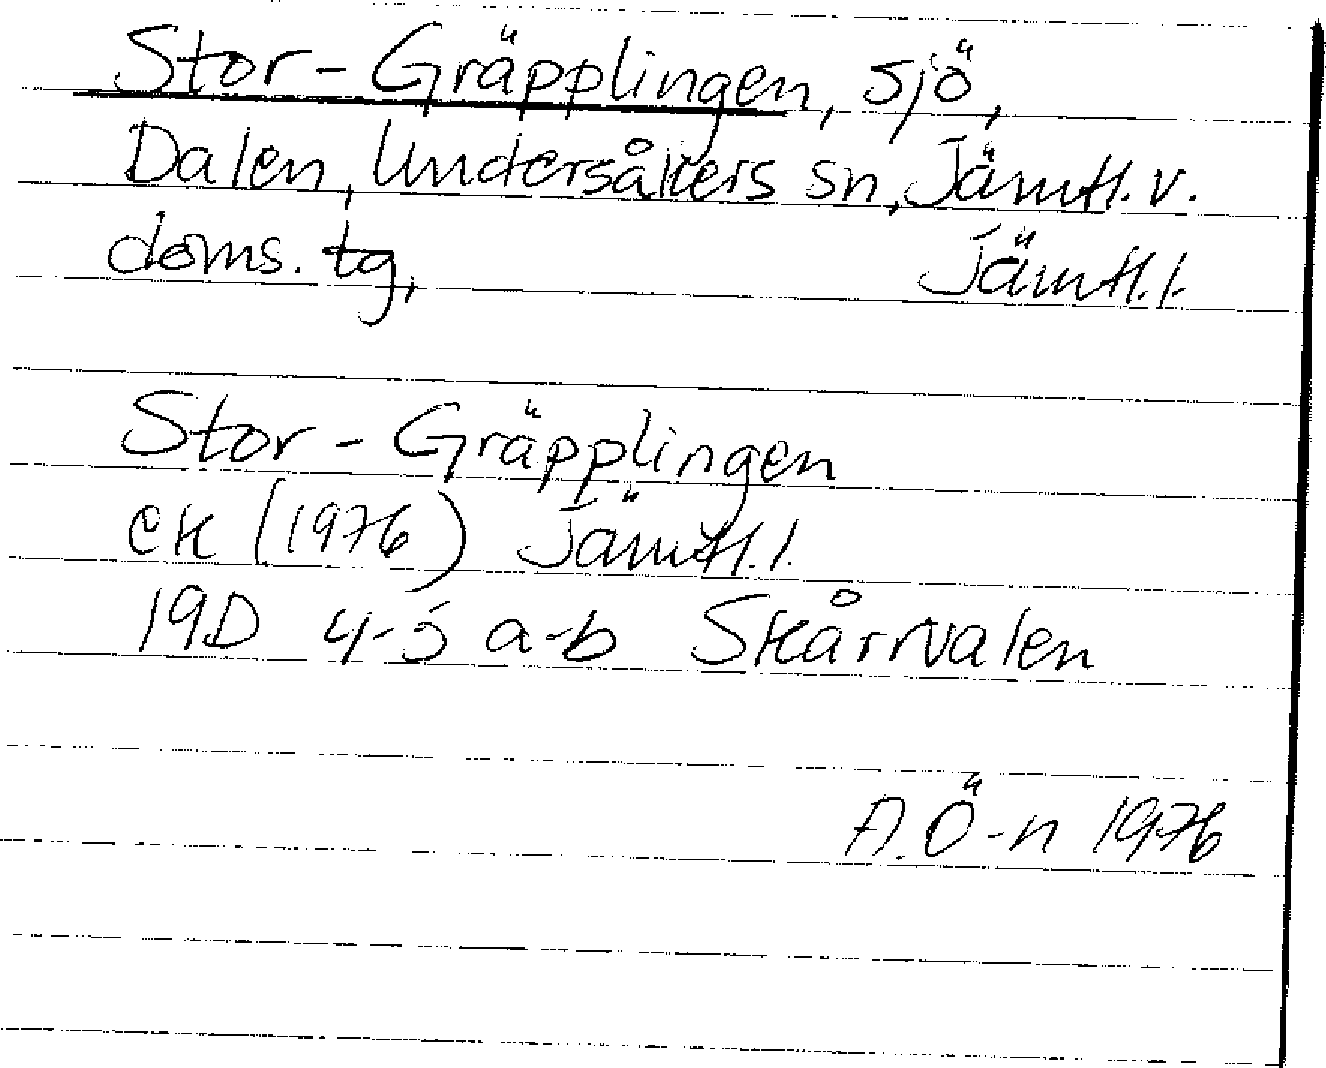 Stor-Gräpplingen, sjö,
Dalen, Undersåkers sn, Jämtl. v.
doms. tg, Jämtl. l.
Stor-Gräpplingen
EK (1976) Jämtl. l.
19D 4-5 a-b Skårvalen
A. Ö-n 1976